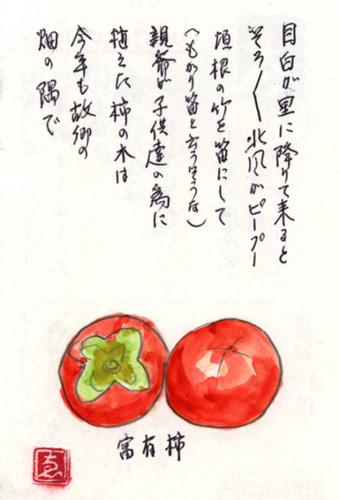 目白が里に降りて来ると
そろ〳〵北風がピープー
垣根の竹を笛にして
(もがり笛と云うそうな)
親爺が子供達の為に
植えた柿の木は
今年も故郷の
畑の隅で
富有柿
ゑ